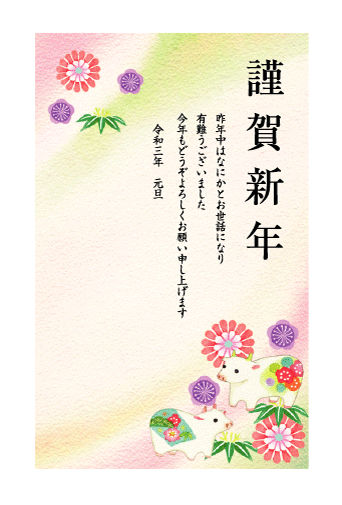 謹賀新年
昨年中はなにかとお世話になり
有難うございました
今年もどうぞよろしくお願い申し上げます
令和三年　元旦